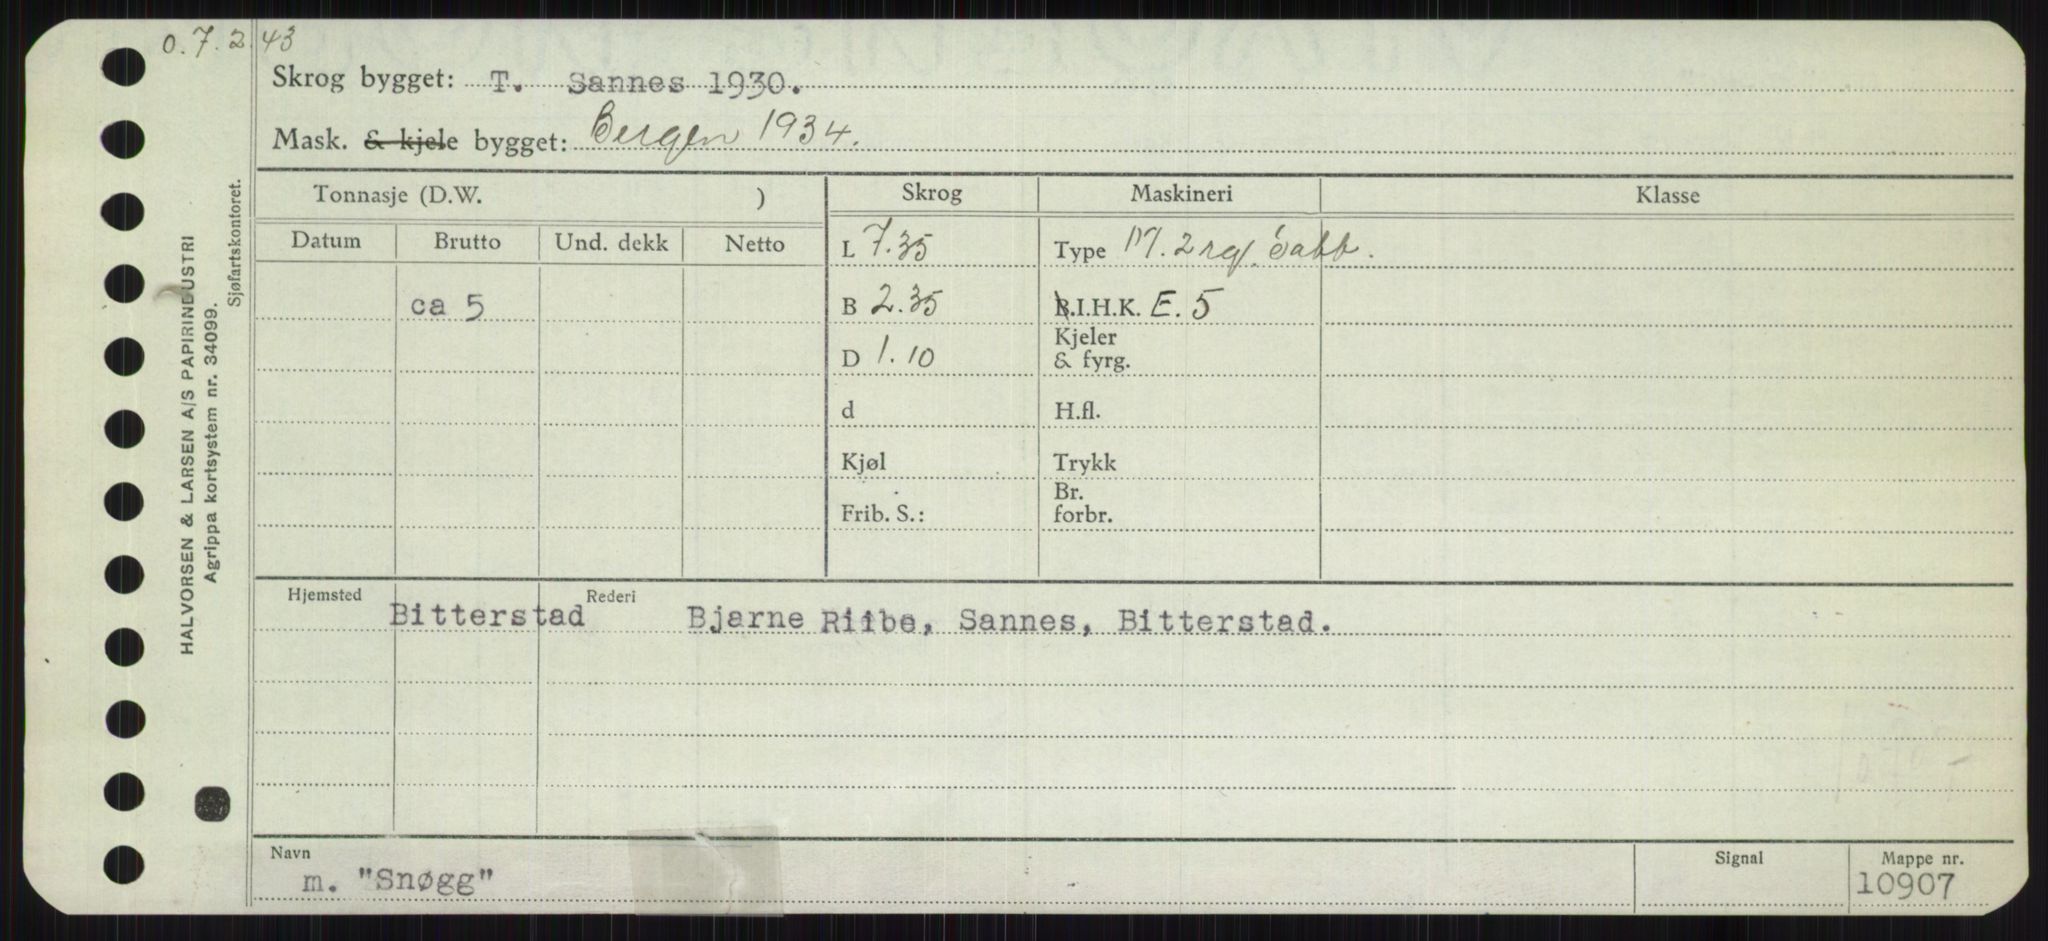 0.7.2.43
Skrog bygget: T. Sannes 1930.
Mask. & kjele bygget: Bergen 1934.
Tonnasje (D.W. )
Skrog
Maskineri
Klasse
Datum
Brutto
Und. dekk
Netto
L 7.35
Type M. 2 rg. Sabb.
ca 5
B 2.35
B.I.H.K. E. 5
D 1.10
Kjeler
& fyrg.
d
H.fl.
Kjøl
Trykk
Frib. S.:
Br.
forbr.
Hjemsted
Bitterstad
Rederi
Bjarne Riibe, Sannes, Bitterstad.
Navn
m. "Snøgg"
Signal
Mappe nr.
10907
HALVORSEN & LARSEN A/S PAPIRINDUSTRI
Agrippa kortsystem nr. 34099.
Sjøfartskontoret.